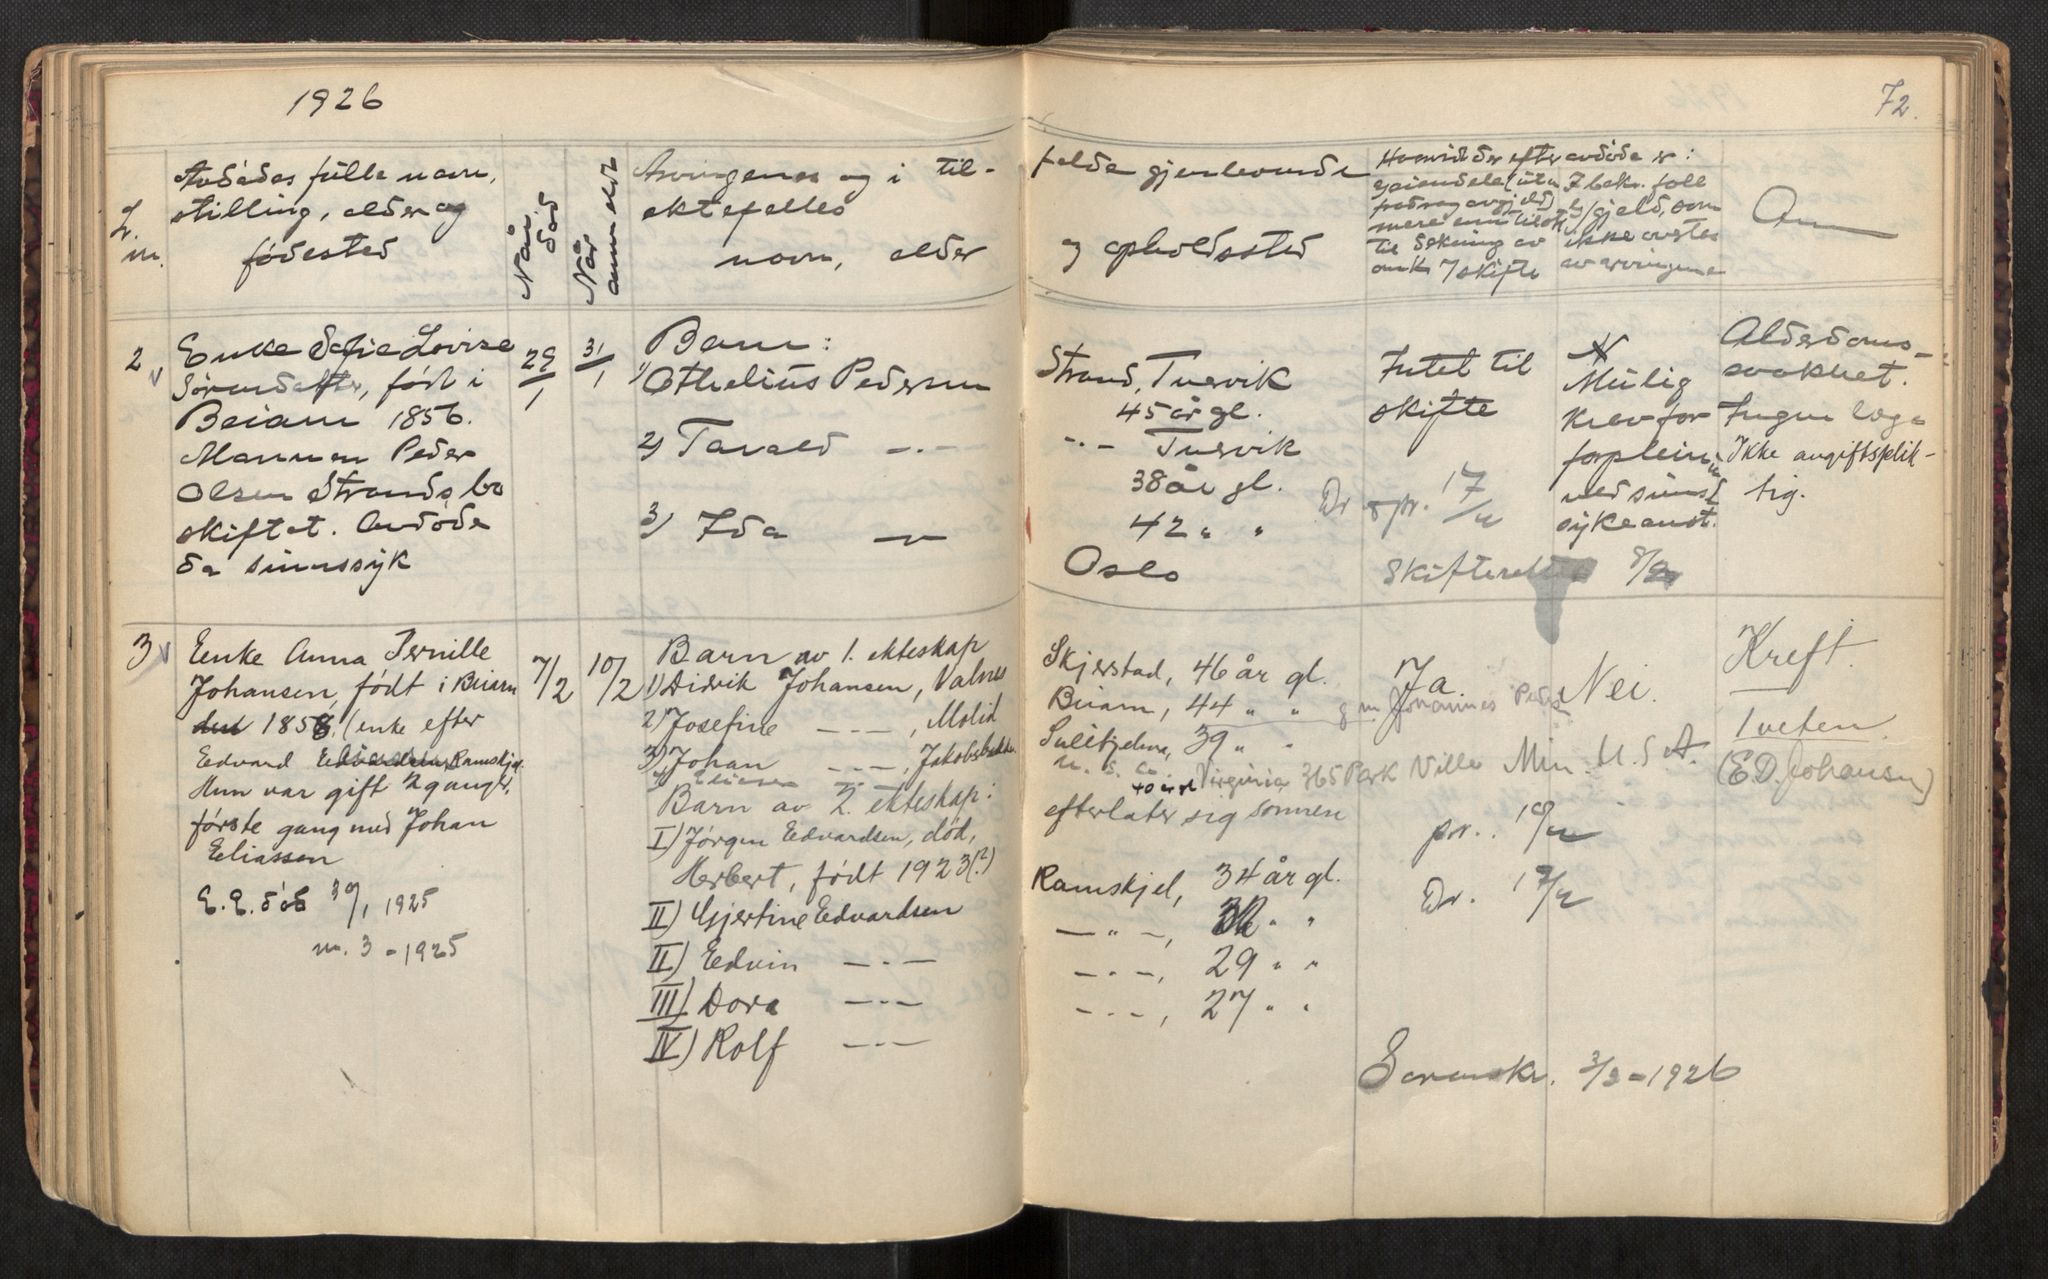 1926
72.
L. nr.
Avdødes fulle navn,
stilling, alder og
fødested
Når død
Når anmeldt
Arvingenes og i til-
ektefelles
navn, alder
felde gjenlevende
og opholdssted
Hvorvidt der efter avdøde er:
eiendele (uten
fradrag av gjeld)
mere enn tilstr.
til dekning av
omk. / skifte
gjeld, som
ikke overtas
av arvingene
Anm
2
Enke Sofie Lovise
Sørensdatter, født i
Beiarn 1856.
Mannen Peder
Olsen Strands bo
skiftet. Avdøde
va sinnssyk
29/1
31/1
Barn:
1) Othelius Pedersen
2) Tarald -"-
3) Ida -"-
Strand, Tuervik
45 år gl.
-"- Tuervik
38 år gl.
42 " "
Oslo
Intet til
skifte
Dr. opr. 17/4
Skifteretten 8/2
Mulig
krev for
forplein
ved sinns
sykeanst.
Alderdoms-
svakhet.
Ingen lege
Ikke avgiftsplik-
tig.
3
Enke Anna Pernille
Johansen, født i Beiarn
den 1858, (enke efter
Edvard Edvardsen Ramskjel
Hun var gift 2 ganger,
første gang med Johan
Eliassen
E. E. død 30/1 1925
nr. 3 - 1925
7/2
10/2
Barn av 1. ekteskap
1) Didrik Johansen, Valnes
2) Josefine -"-, Molid
3) Johan -"-, Jakobsbakken
4) Eliesen
Barn av 2. ekteskap:
I) Jørgen Edvardsen, død,
Herbert, født 1923(?)
II) Gjertine Edvardsen
II) Edvin -"-
III) Dora -"-
IV) Rolf -"-
Skjerstad, 46 år gl.
Beiarn, 44 " " g.m. Johannes Peders
Sulitjelma, 39 " "
40 år gl Virginia 365 Park Ville Min. U.S.A.
efterlater sig sønnen
Ramskjel, 34 år gl.
-"-, 32 " "
-"-, 29 " "
-"-, 27 " "
Ja.
Nei.
pr. 10/4
Dr. 17/4
Kreft.
1 veten.
(E D. Johansen)
Oversnskr. 3/3 - 1926